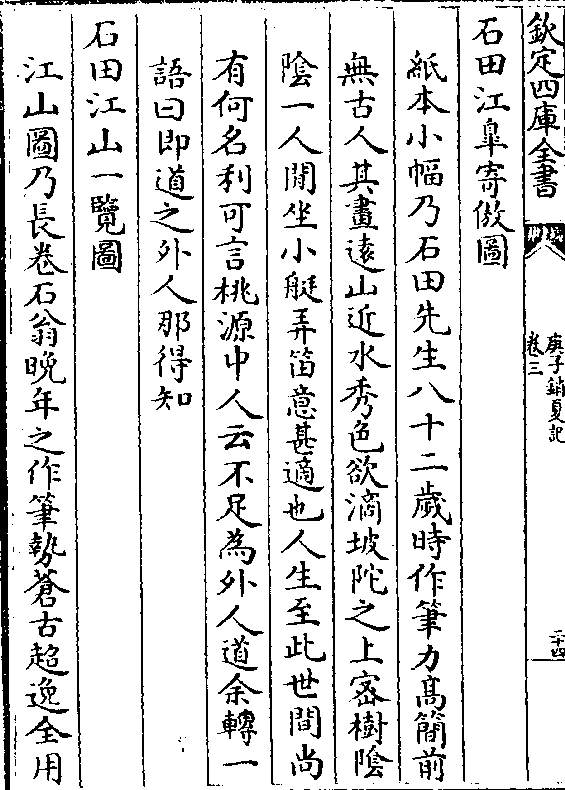 欽定四庫全書
庚子銷夏記
卷三
二十四
石田江臯寄傲圖
紙本小幅乃石田先生八十二歲時作筆力髙簡前
無古人其畫遠山近水秀色欲滴坡陀之上宻樹隂
隂一人閒坐小艇弄笛意甚適也人生至此世間尚
有何名利可言桃源中人云不足為外人道余轉一
語曰即道之外人那得知
石田江山一覽圖
江山圖乃長卷石翁晩年之作筆勢蒼古超逸全用